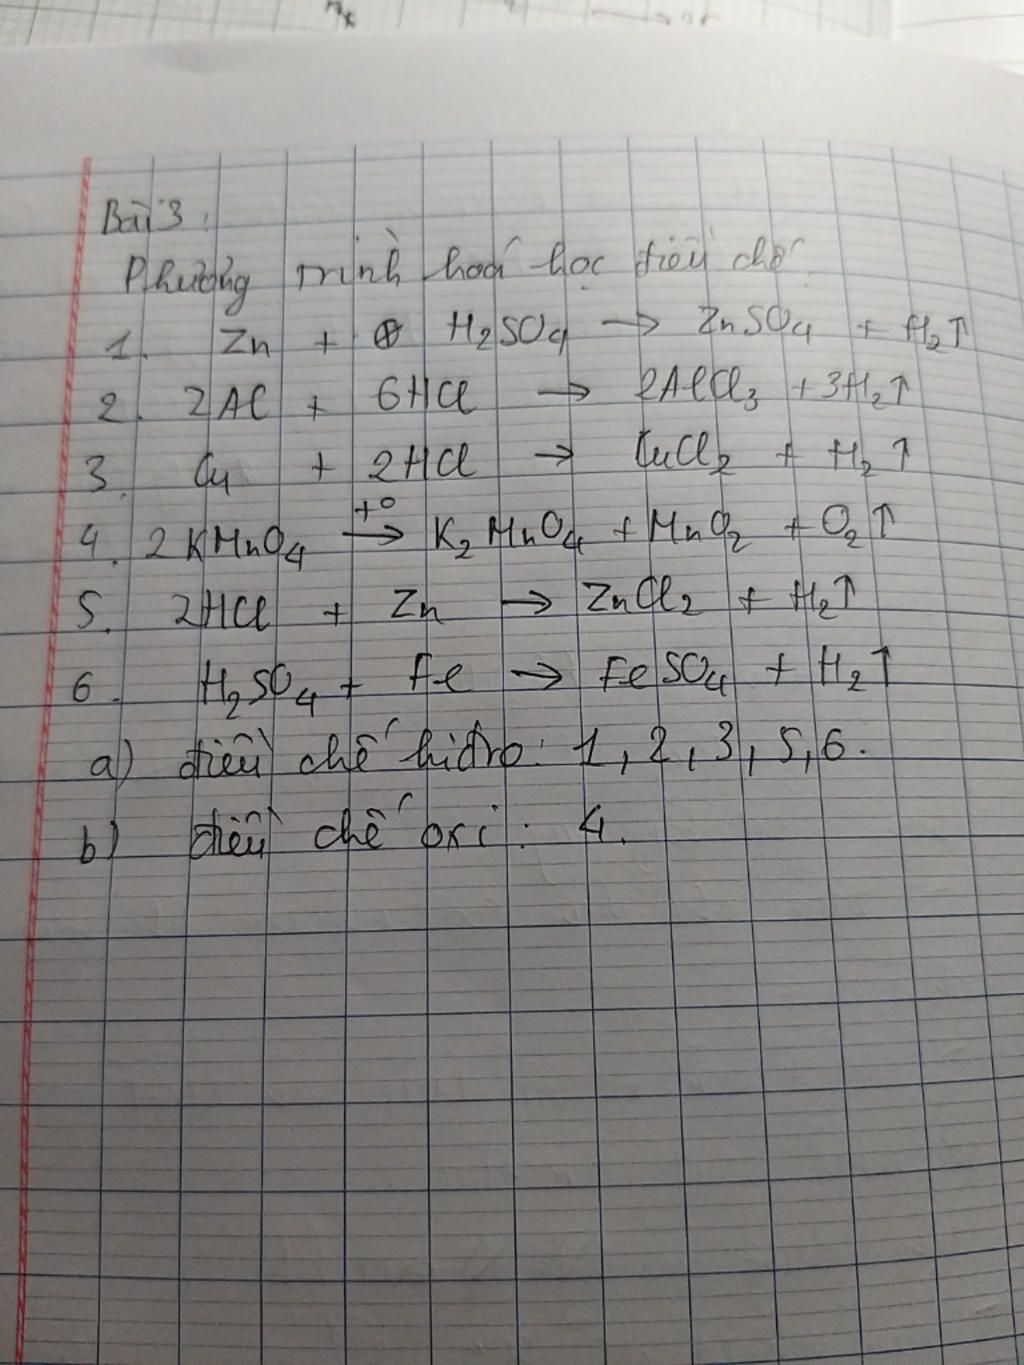 Bài 3:
Phương trình hoá học điều chế
1. Zn + H₂SO₄ → ZnSO₄ + H₂↑
2. 2Al + 6HCl → 2AlCl₃ + 3H₂↑
3. Cu + 2HCl → CuCl₂ + H₂↑
4. 2KMnO₄ →(t°) K₂MnO₄ + MnO₂ + O₂↑
5. 2HCl + Zn → ZnCl₂ + H₂↑
6. H₂SO₄ + Fe → FeSO₄ + H₂↑
a) điều chế hiđro: 1, 2, 3, 5, 6.
b) điều chế oxi: 4.